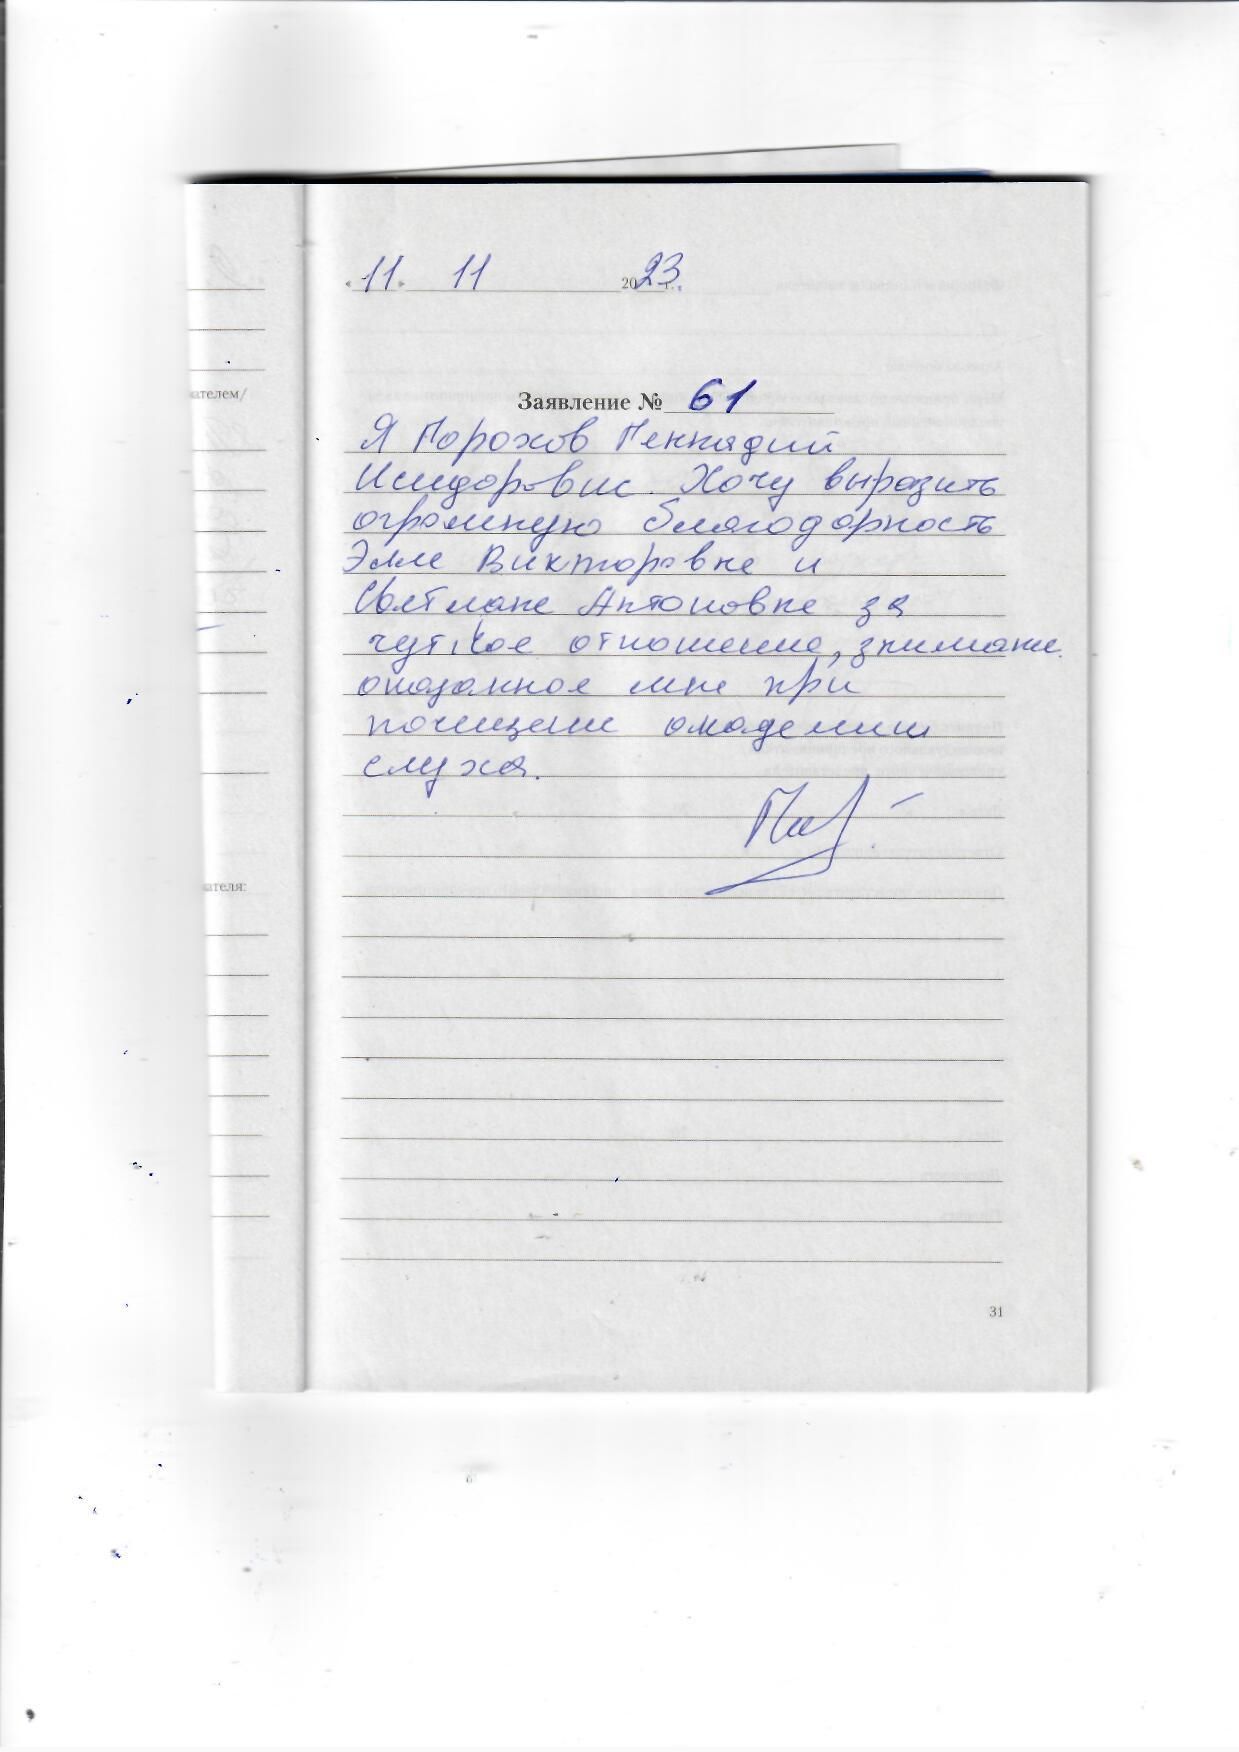 ателем/
ателя:
«11» 11 2023 г.
Заявление № 61
Я Горохов Геннадий
Исидорович. Хочу выразить
огромную благодарность
Элле Викторовне и
Светлане Антоновне за
чуткое отношение, внимание
оказанное мне при
посещени академии
слуха.
31